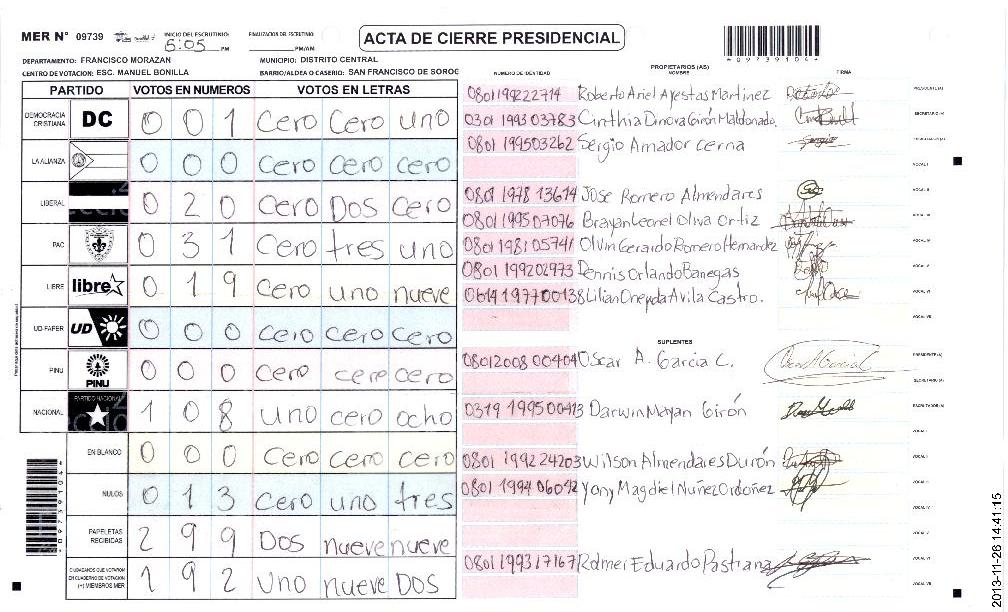 MER N° 09739
INICIO DEL ESCRUTINIO:
5:05 PM
FINALIZACION DEL ESCRUTINIO:
PM/AM
ACTA DE CIERRE PRESIDENCIAL
*09739104*
DEPARTAMENTO: FRANCISCO MORAZAN
MUNICIPIO: DISTRITO CENTRAL
CENTRO DE VOTACION: ESC. MANUEL BONILLA
BARRIO/ALDEA O CASERIO: SAN FRANCISCO DE SOROG
PARTIDO VOTOS EN NUMEROS VOTOS EN LETRAS
DEMOCRACIA CRISTIANA DC 0 0 1 cero cero uno
LA ALIANZA 0 0 0 cero cero cero
LIBERAL 0 2 0 cero DOS cero
PAC 0 3 1 cero tres uno
LIBRE libre 0 1 9 cero uno nueve
UD-FAPER UD 0 0 0 cero cero cero
PINU PINU 0 0 0 cero cere cero
NACIONAL PARTIDO NACIONAL 1 0 8 uno cero ocho
EN BLANCO 0 0 0 cero cero cero
NULOS 0 1 3 cero uno tres
PAPELETAS RECIBIDAS 2 9 9 DOS nueve nueve
CIUDADANOS QUE VOTARON EN CUADERNO DE VOTACION (+) MIEMBROS MER 1 9 2 uno nueve DOS
PROPIETARIOS (AS)
NUMERO DE IDENTIDAD NOMBRE FIRMA
0801199222714 Roberto Ariel Ayestas Martinez PRESIDENTE (A)
0301 199303783 Cinthia Dinora Girón Maldonado. SECRETARIO (A)
0801 199503262 Sergio Amador cerna
VOCAL I
0801 1978 13614 Jose Romero Almendares VOCAL II
0801 199507076 Brayan Leonel Oliva Ortiz VOCAL III
0801 198105741 Olvin Gerardo Romero Hernandez VOCAL IV
0801 199202973 Dennis Orlando Banegas VOCAL V
0614 197700138 Lilian Oneyda Avila Castro. VOCAL VI
VOCAL VII
SUPLENTES
08012008 00404 Oscar A. Garcia C. PRESIDENTE (A)
SECRETARIO (A)
0319 199500413 Darwin Mayan Girón ESCRUTADOR (A)
VOCAL I
0801 199224203 Wilson Almendares Durón VOCAL II
0801 1994 06092 Yony Magdiel Nuñez Ordoñez VOCAL III
VOCAL IV
VOCAL V
0801 1993 17167 Rolmer Eduardo Pastrana VOCAL VI
VOCAL VII
2013-11-26 14:41:15